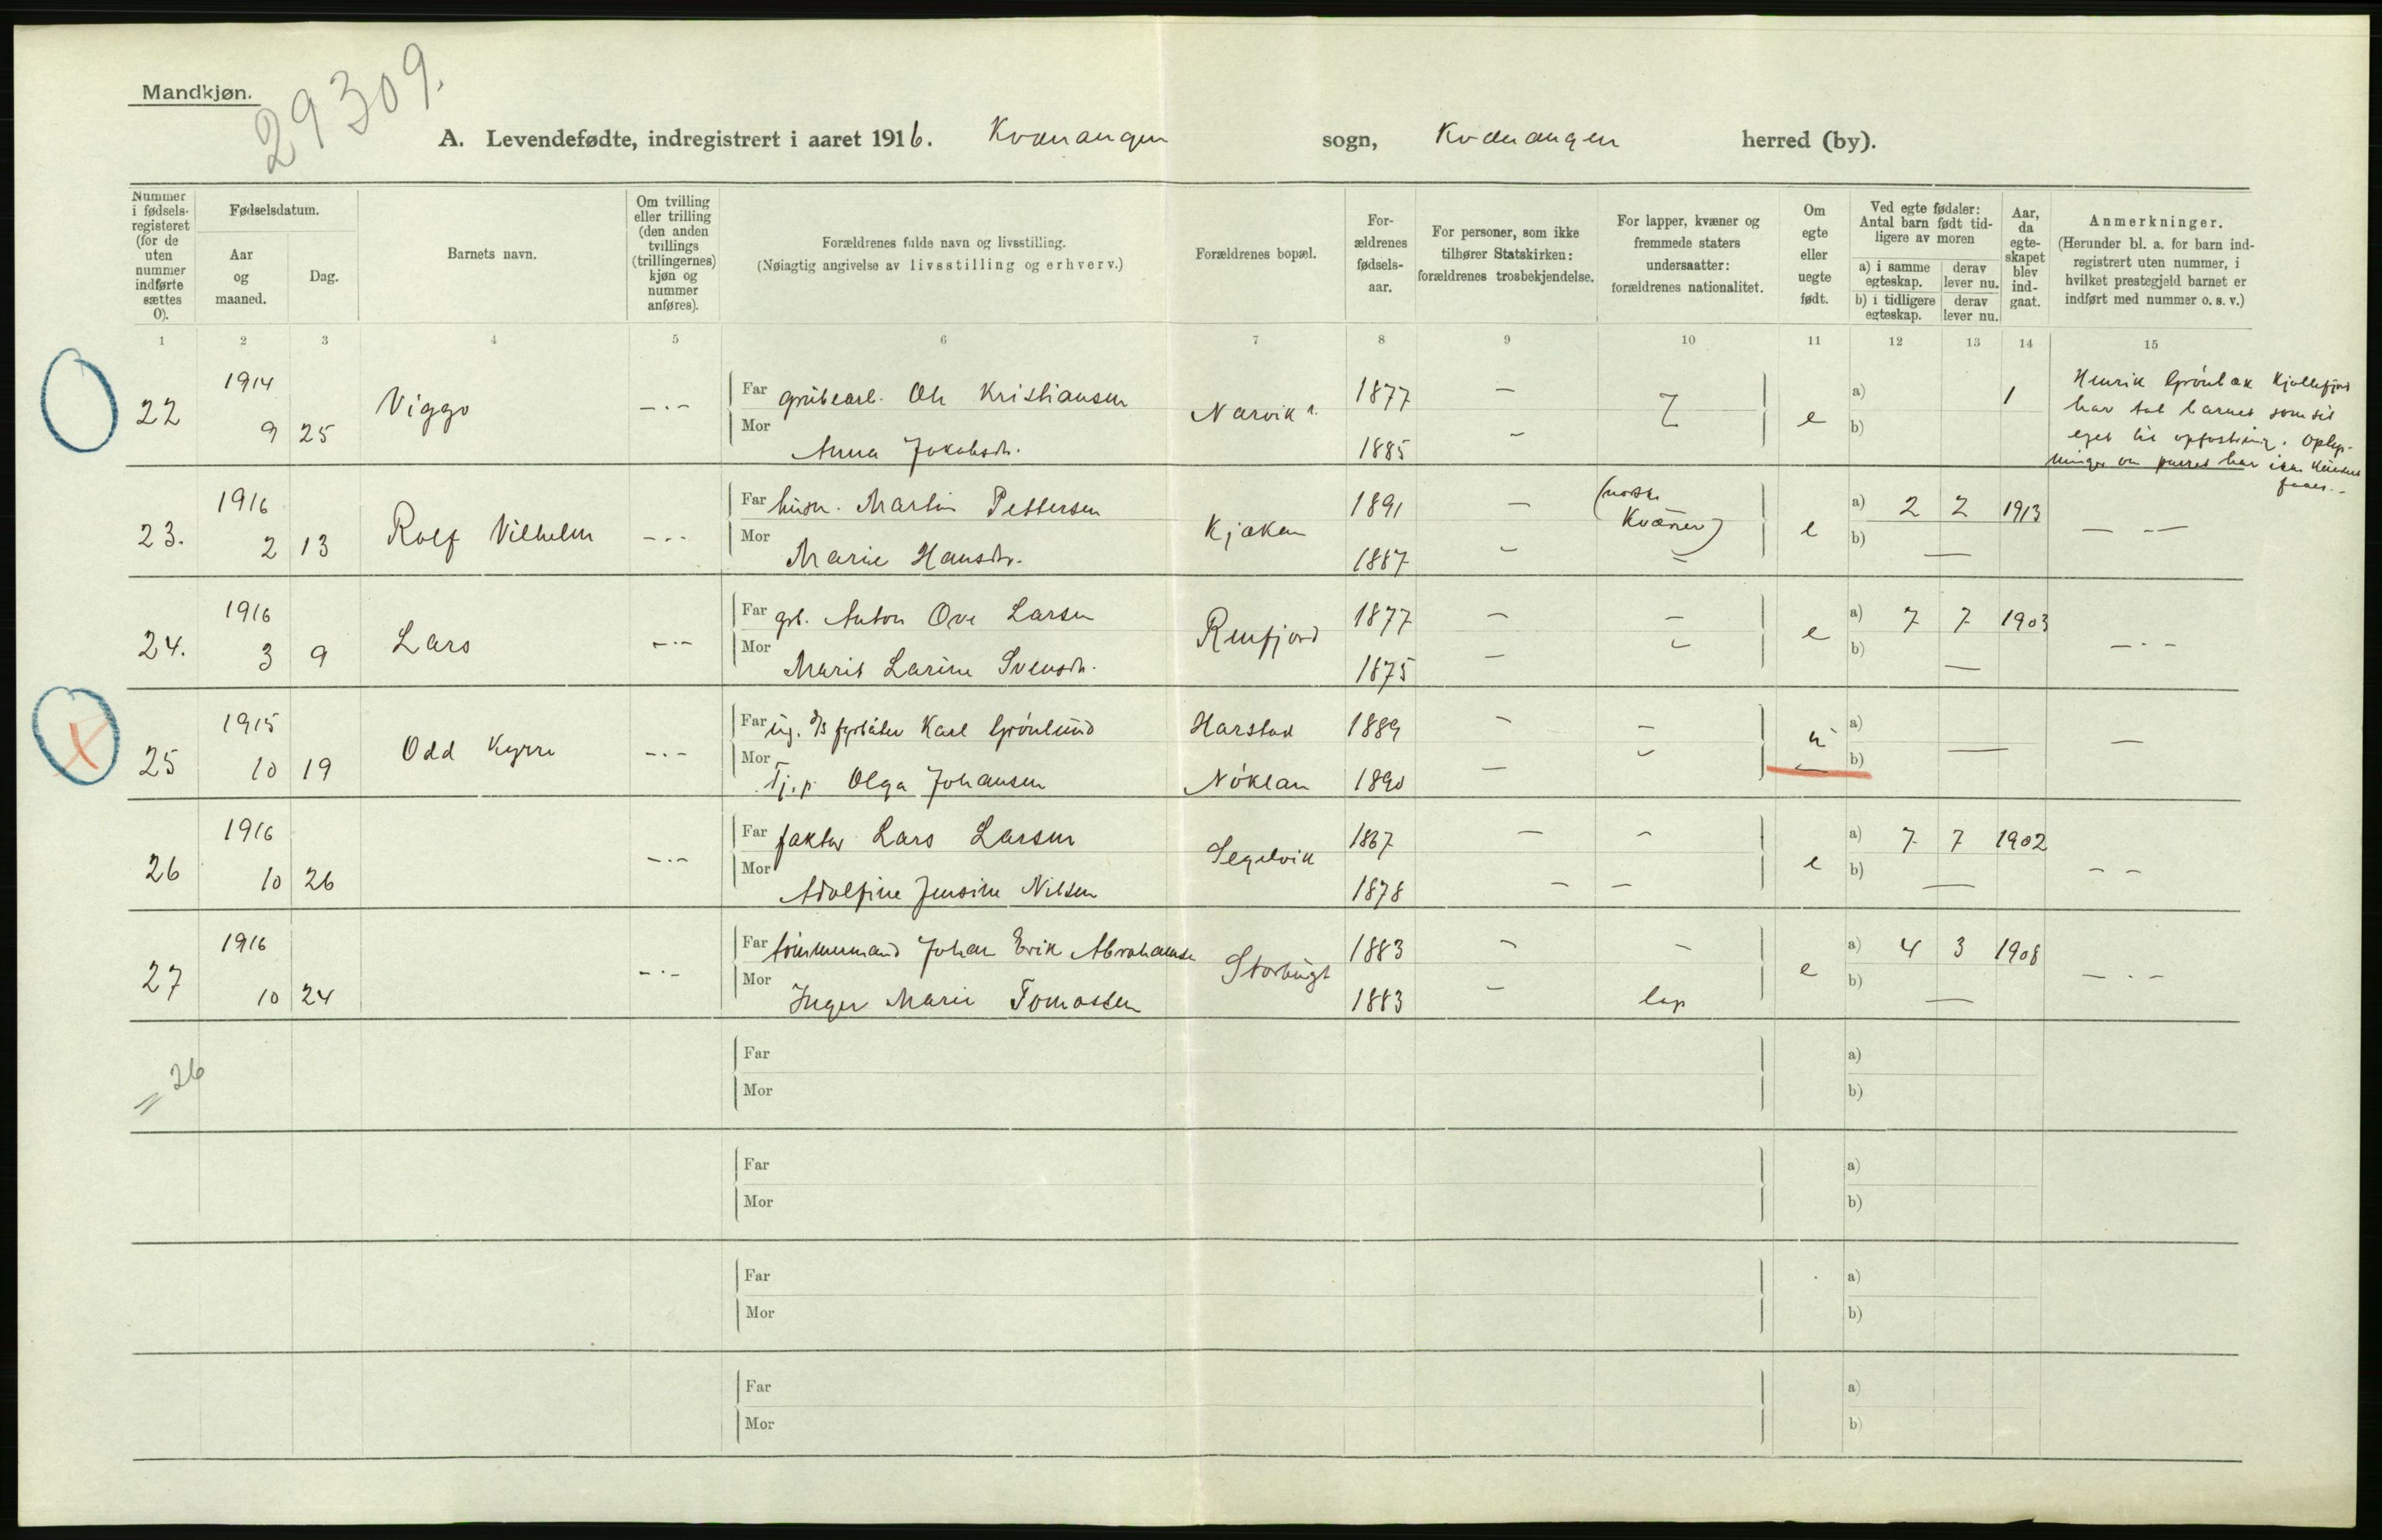 Mandkjøn.
29309.
A. Levendefødte, indregistrert i aaret 1916. Kvænangen sogn, Kvænangen herred (by).
Nummer i fødsels-registeret (for de uten nummer indførte sættes 0).
Fødselsdatum.
Aar og maaned.
Dag.
Barnets navn.
Om tvilling eller trilling (den anden tvillings (trillingernes) kjøn og nummer anføres).
Forældrenes fulde navn og livsstilling.
(Nøiagtig angivelse av livsstilling og erhverv.)
Forældrenes bopæl.
For-ældrenes fødsels-aar.
For personer, som ikke tilhører Statskirken: forældrenes trosbekjendelse.
For lapper, kvæner og fremmede staters undersaatter: forældrenes nationalitet.
Om egte eller uegte født.
Ved egte fødsler: Antal barn født tid-ligere av moren
a) i samme egteskap.
derav lever nu.
b) i tidligere egteskap.
derav lever nu.
Aar, da egte-skapet blev ind-gaat.
Anmerkninger.
(Herunder bl. a. for barn ind-registrert uten nummer, i hvilket prestegjeld barnet er indført med nummer o. s. v.)
1 2 3 4 5 6 7 8 9 10 11 12 13 14 15
22 1914 9 25 Viggo -.-
Far grubearb. Ole Kristiansen Narvik 1877 -
Mor Anna Jakobsdr. 1885 -
e a) b) 1
Henrik Grönbæk Kjøllefjord
har tat barnet som sit
eget til opfostring. Oplys-
ninger om parret har ikke kunnet
faaes.-
23. 1916 2 13 Rolf Vilhelm -.-
Far husm. Martin Pettersen Kjækan 1891 - (norske Kvæner)
Mor Marie Hansdr. 1887 - =
e a) 2 2 1913
b) — — -—
24. 1916 3 9 Lars -.-
Far gbr. Anton Ove Larsen Renfjord 1877 - -
Mor Marit Larine Svensdr. 1875 - -
e a) 7 7 1903
b) — -.-
25 1915 10 19 Odd Kyrre -.-
Far ug. D/S fyrbøter Karl Grönlund Harstad 1889 - -
Mor Tj.p. Olga Johansen Nöklan 1890 - -
u a) b) — —
26 1916 10 26 -.-
Far faktor Lars Larsen Segelvik 1867 - -
Mor Adolfine Jensine Nilsen 1878 - -
e a) 7 7 1902
b) — - -
27 1916 10 24 -.-
Far tömmermand Johan Erik Abrahamsen Storbugt 1883 - -
Mor Inger Marie Tomassen 1883 - lap
e a) 4 3 1908
b) — -.-
= 26
Far a)
Mor b)
Far a)
Mor b)
Far a)
Mor b)
Far a)
Mor b)